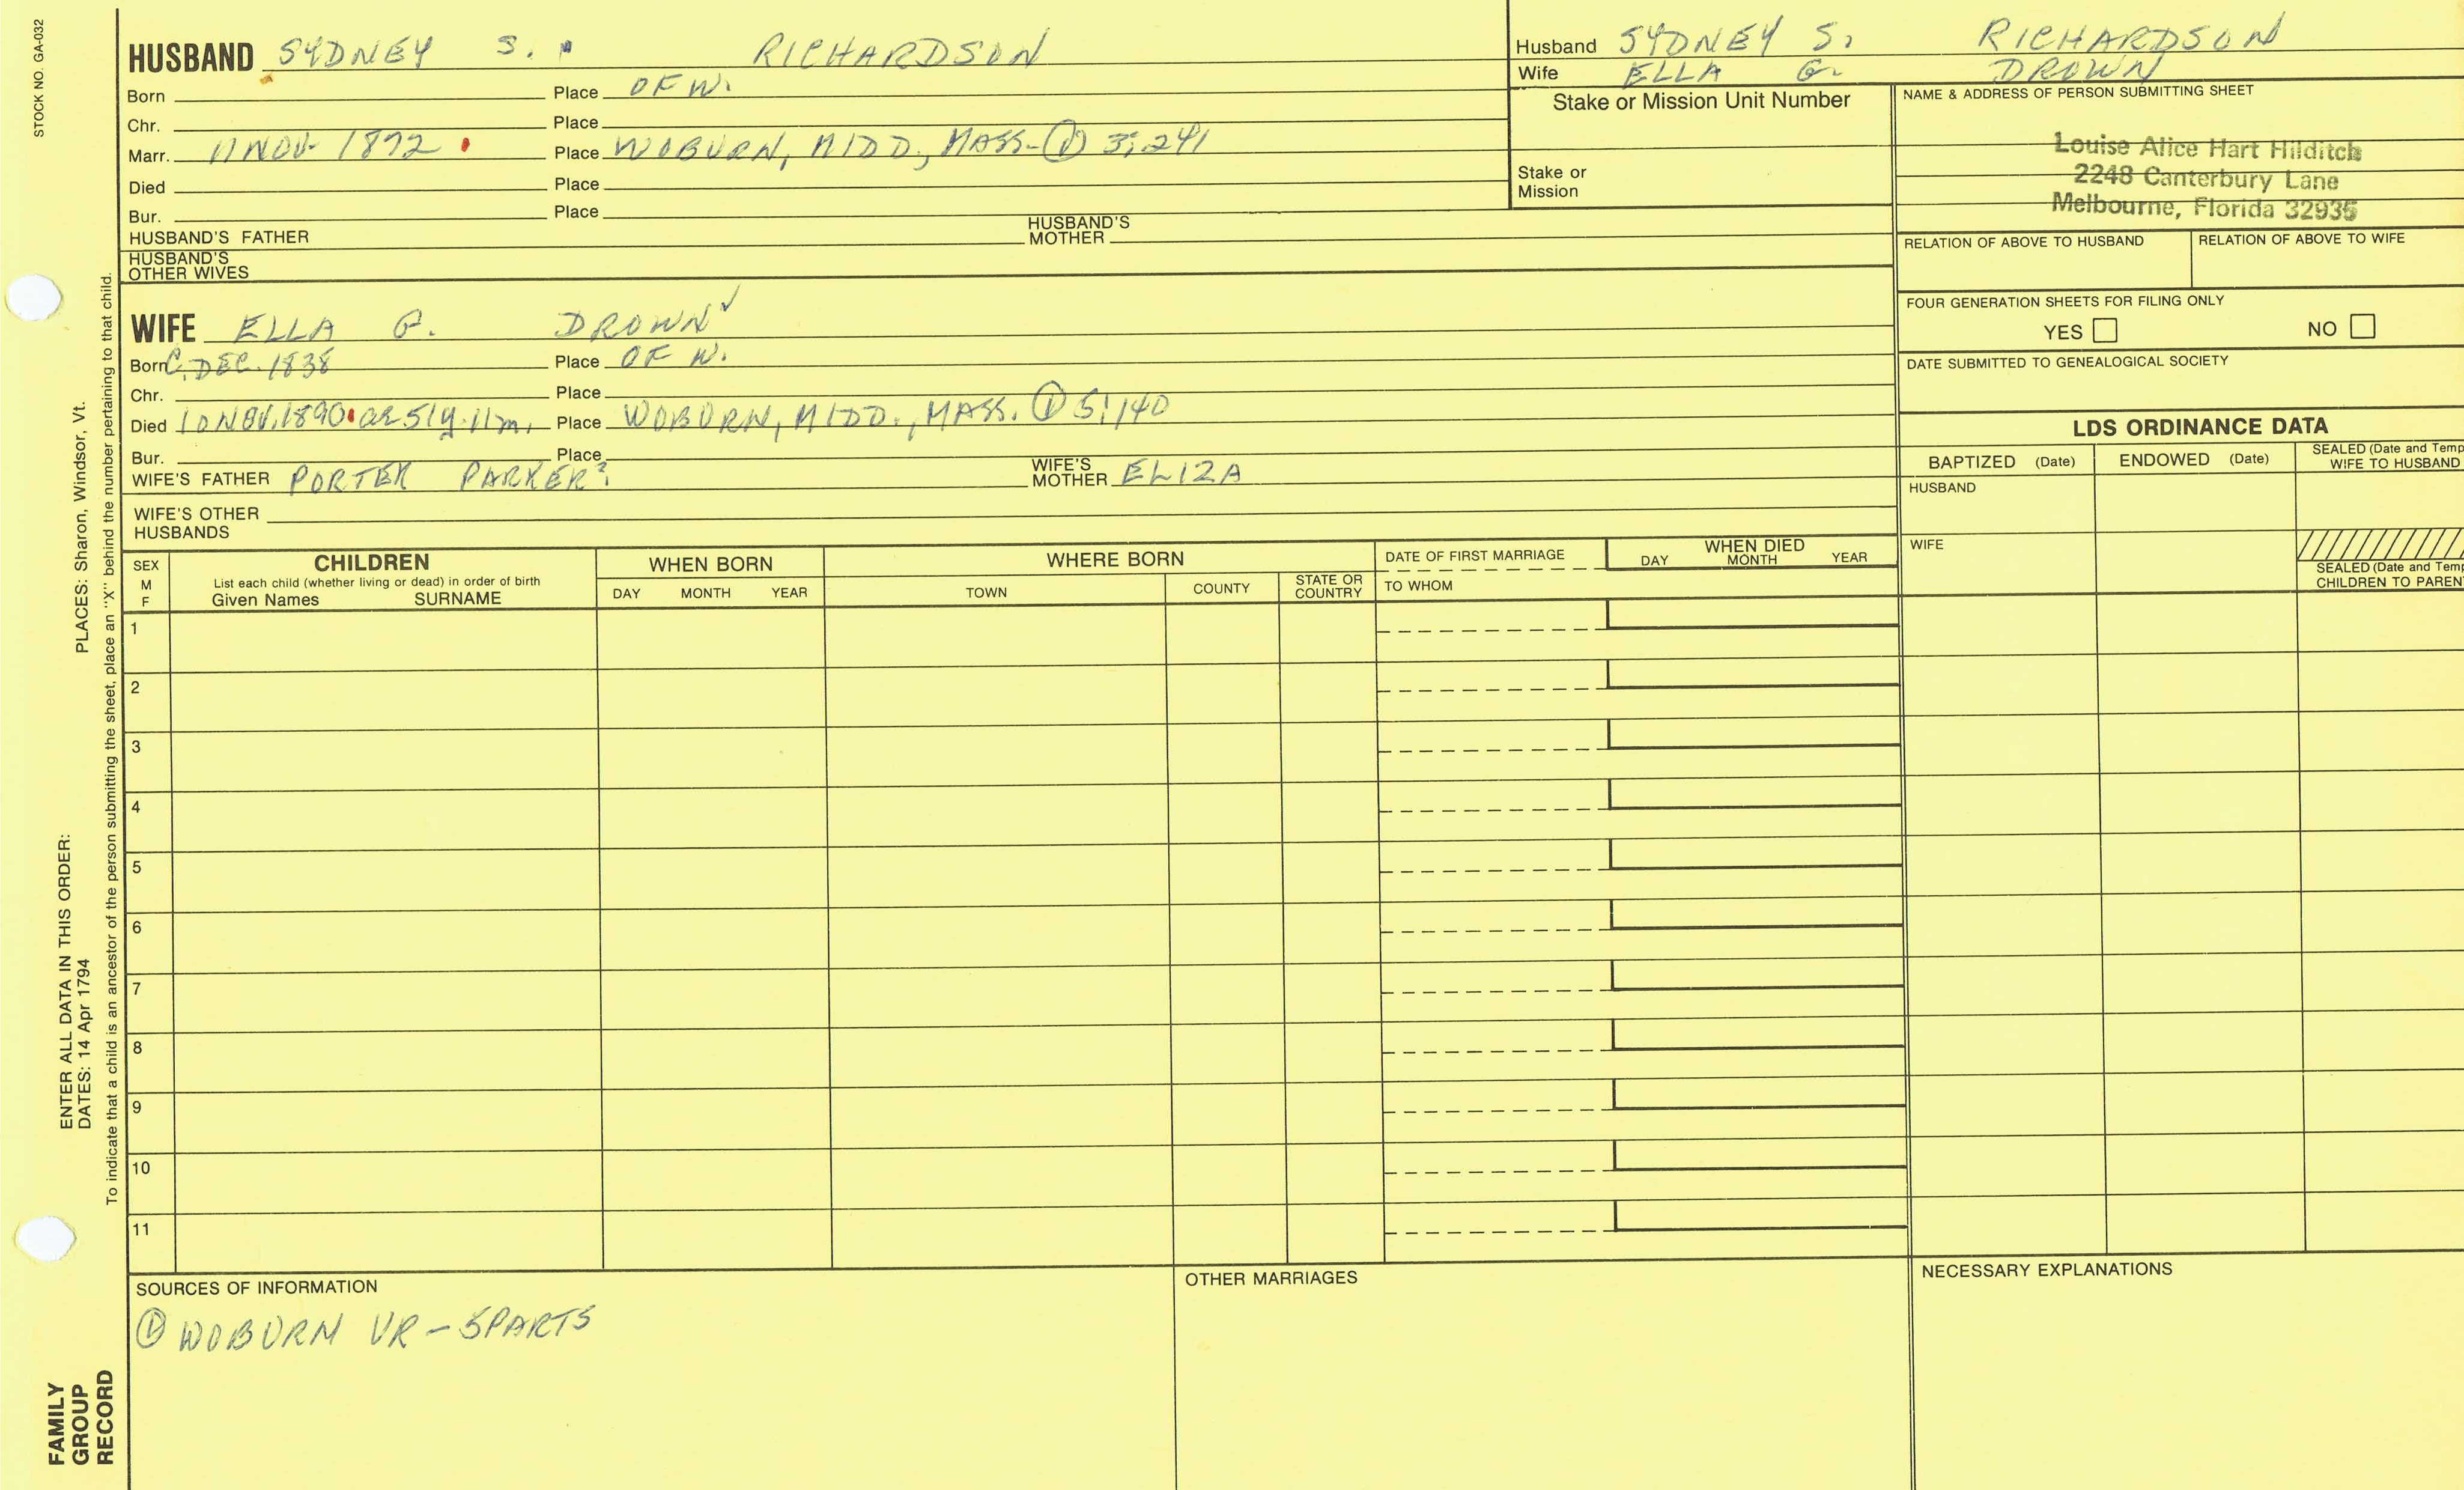 STOCK NO. GA-032
HUSBAND SYDNEY S. RICHARDSON
Born Place OF W.
Chr. Place
Marr. 11 NOV. 1872 Place WOBURN, MIDD., MASS. ① 3:241
Died Place
Bur. Place
HUSBAND'S FATHER HUSBAND'S MOTHER
HUSBAND'S OTHER WIVES
WIFE ELLA G. DROWN ✓
Born C. DEC. 1838 Place OF W.
Chr. Place
Died 10 NOV. 1890 ae 51y. 11m. Place WOBURN, MIDD., MASS. ① 5:140
Bur. Place
WIFE'S FATHER PORTER PARKER? WIFE'S MOTHER ELIZA
WIFE'S OTHER HUSBANDS
Husband SYDNEY S. RICHARDSON
Wife ELLA G. DROWN
Stake or Mission Unit Number
Stake or Mission
NAME & ADDRESS OF PERSON SUBMITTING SHEET
Louise Alice Hart Hilditch
2248 Canterbury Lane
Melbourne, Florida 32935
RELATION OF ABOVE TO HUSBAND RELATION OF ABOVE TO WIFE
FOUR GENERATION SHEETS FOR FILING ONLY
YES NO
DATE SUBMITTED TO GENEALOGICAL SOCIETY
LDS ORDINANCE DATA
BAPTIZED (Date) ENDOWED (Date) SEALED (Date and Temp
WIFE TO HUSBAND
HUSBAND
WIFE
SEALED (Date and Temp
CHILDREN TO PAREN
SEX
M
F
CHILDREN
List each child (whether living or dead) in order of birth
Given Names SURNAME
WHEN BORN
DAY MONTH YEAR
WHERE BORN
TOWN COUNTY STATE OR COUNTRY
DATE OF FIRST MARRIAGE
TO WHOM
WHEN DIED
DAY MONTH YEAR
1
2
3
4
5
6
7
8
9
10
11
SOURCES OF INFORMATION
① WOBURN VR - 5PARTS
OTHER MARRIAGES
NECESSARY EXPLANATIONS
ENTER ALL DATA IN THIS ORDER:
DATES: 14 Apr 1794 PLACES: Sharon, Windsor, Vt.
To indicate that a child is an ancestor of the person submitting the sheet, place an "X" behind the number pertaining to that child.
FAMILY
GROUP
RECORD